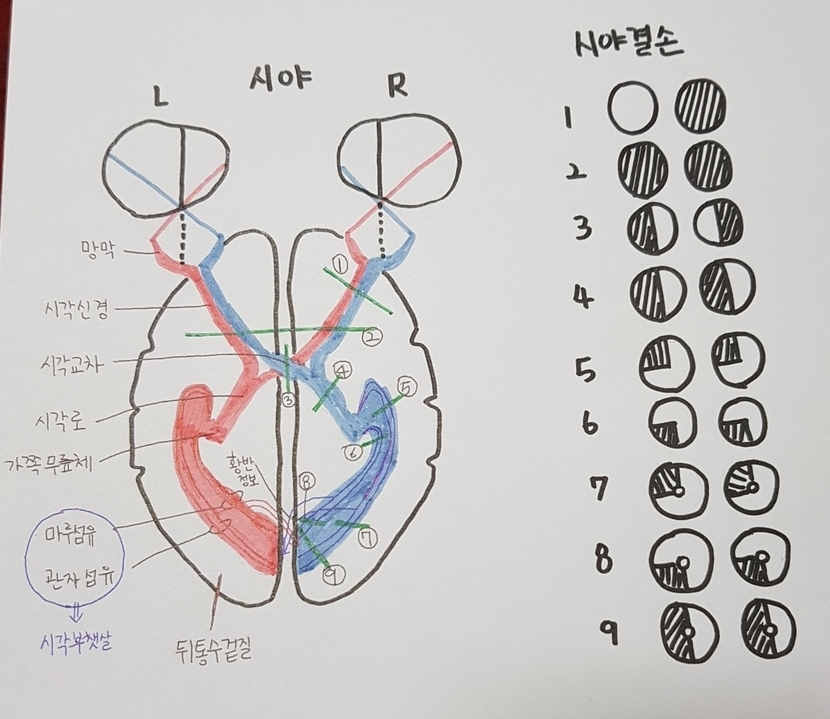 시야
L
R
망막
시각신경
시각교차
시각로
가쪽무릎체
황반
정보
마루섬유
관자섬유
시각부챗살
뒤통수겉질
①
②
③
④
⑤
⑥
⑦
⑧
⑨
시야결손
1
2
3
4
5
6
7
8
9